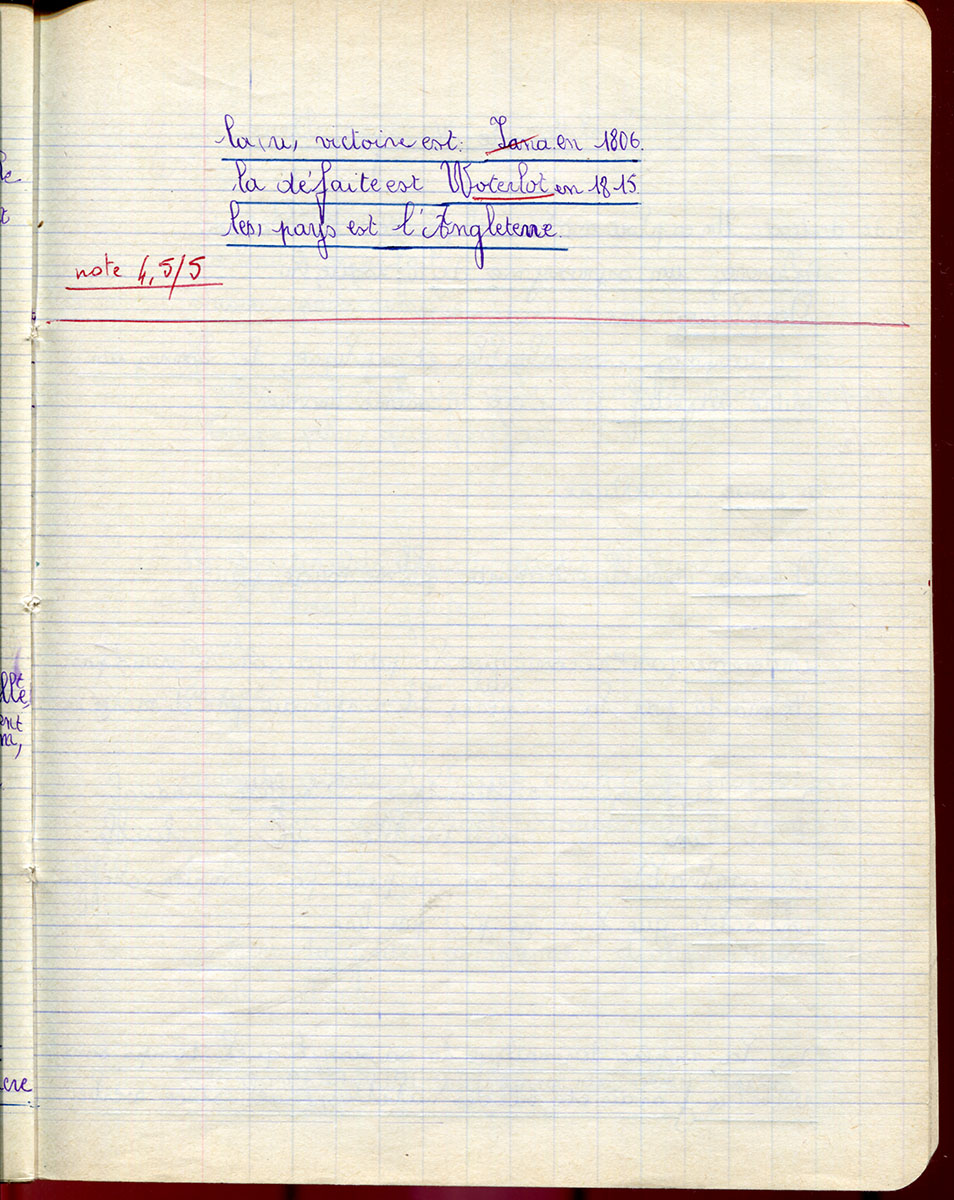 la (u, victoire est: Iana en 1806.
la défaite est Woterlot en 1815
les, pays est l'Angleterre.
note 4,5/5
ent
ere